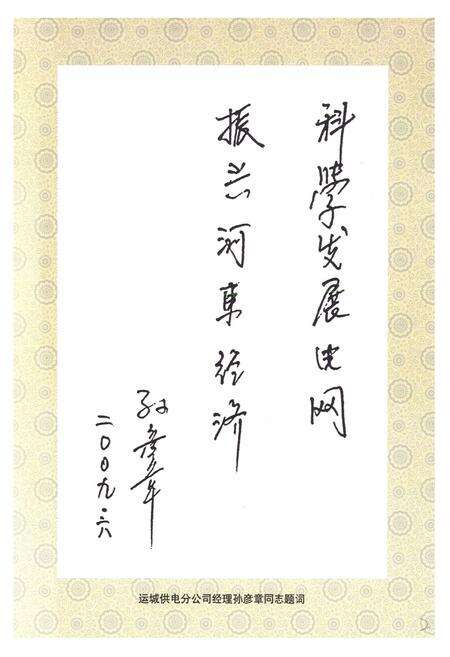 科學发展电网
振兴河東经济
孙彦章
二〇〇九.六
运城供电分公司经理孙彦章同志题词